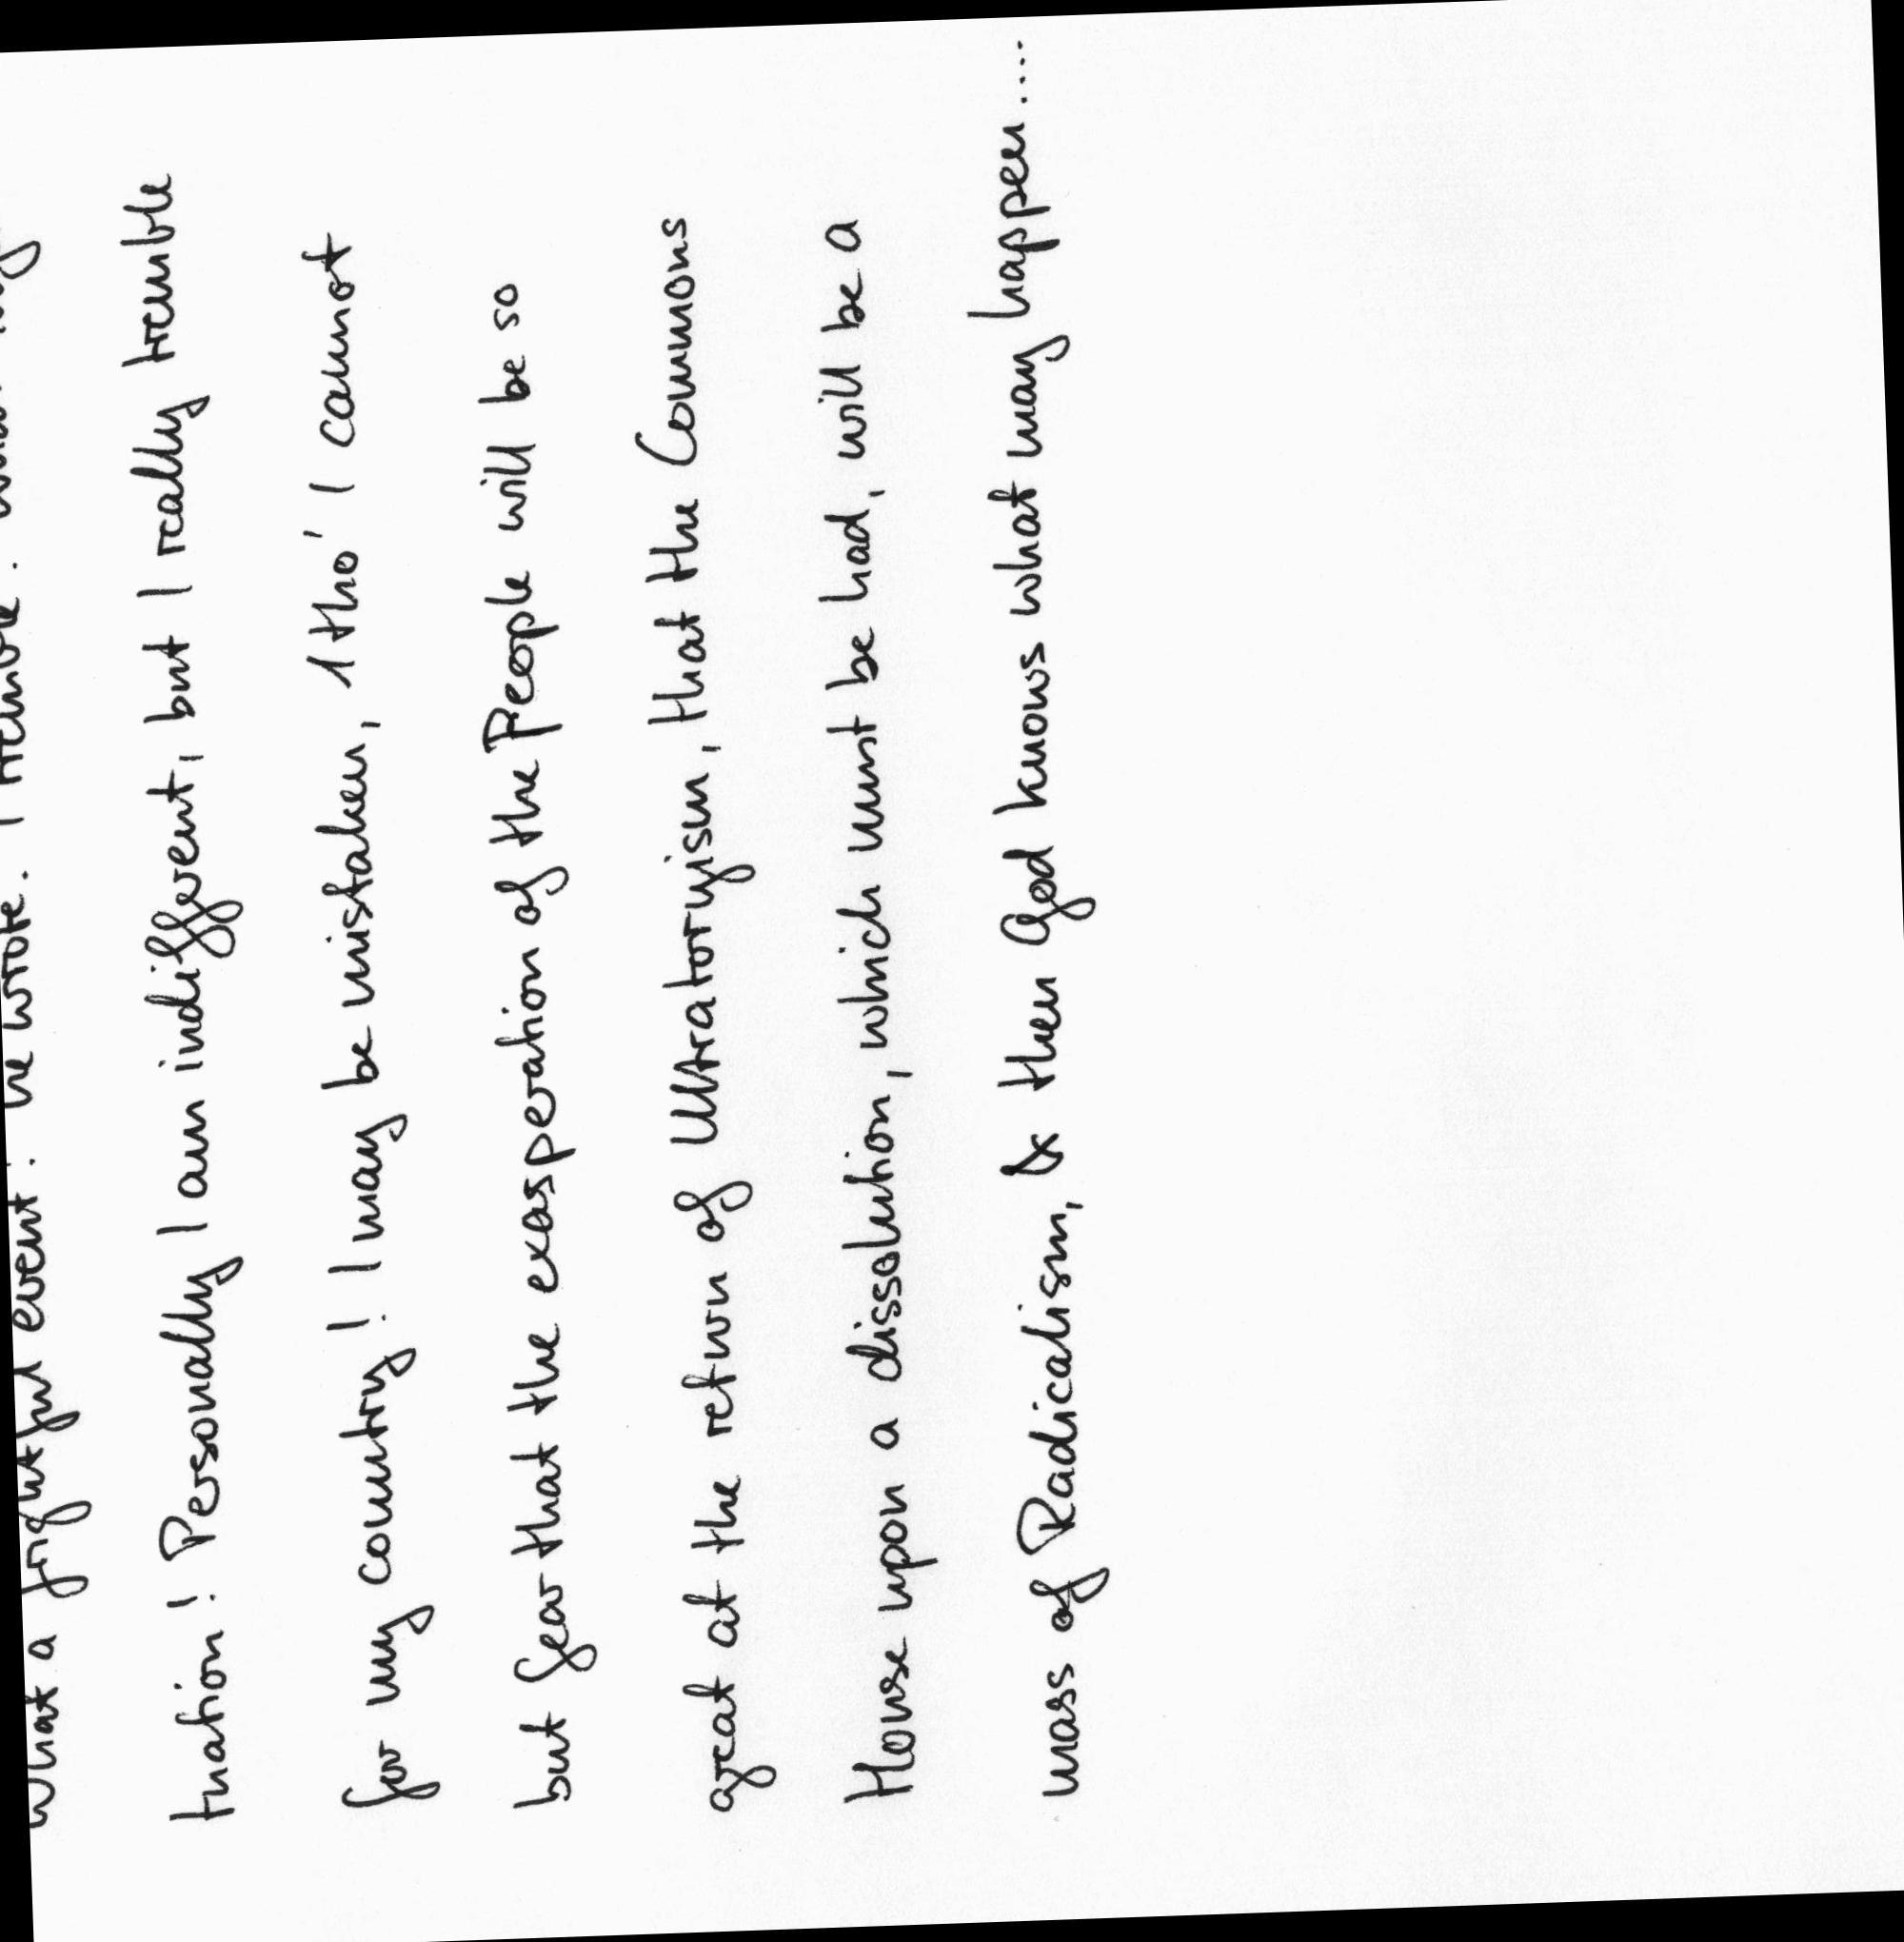 what a frightful event. he wrote. I tremble.
tuation! Personally I am indifferent, but I really tremble
for my country! I may be mistaken, 1 tho' I cannot
but fear that the exasperation of the People will be so
great at the return of Ultratoryism, that the Commons
House upon a dissolution, which must be had, will be a
mass of Radicalism, & then God knows what may happen....